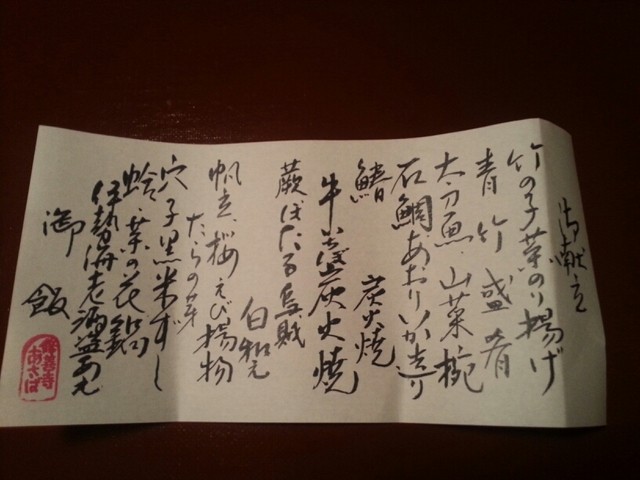 御献立
竹の子葉のり揚げ
青竹盛肴
太刀魚山菜椀
石鯛あおりいか造り
鰆 炭火焼
牛いちぼ炭火焼
蕨ほたる烏賊
白和え
帆立、桜えび揚物
たらの芽
穴子黒米ずし
蛤菜の花鍋
伊勢海老酒盗あえ
御飯
修善寺
あさば